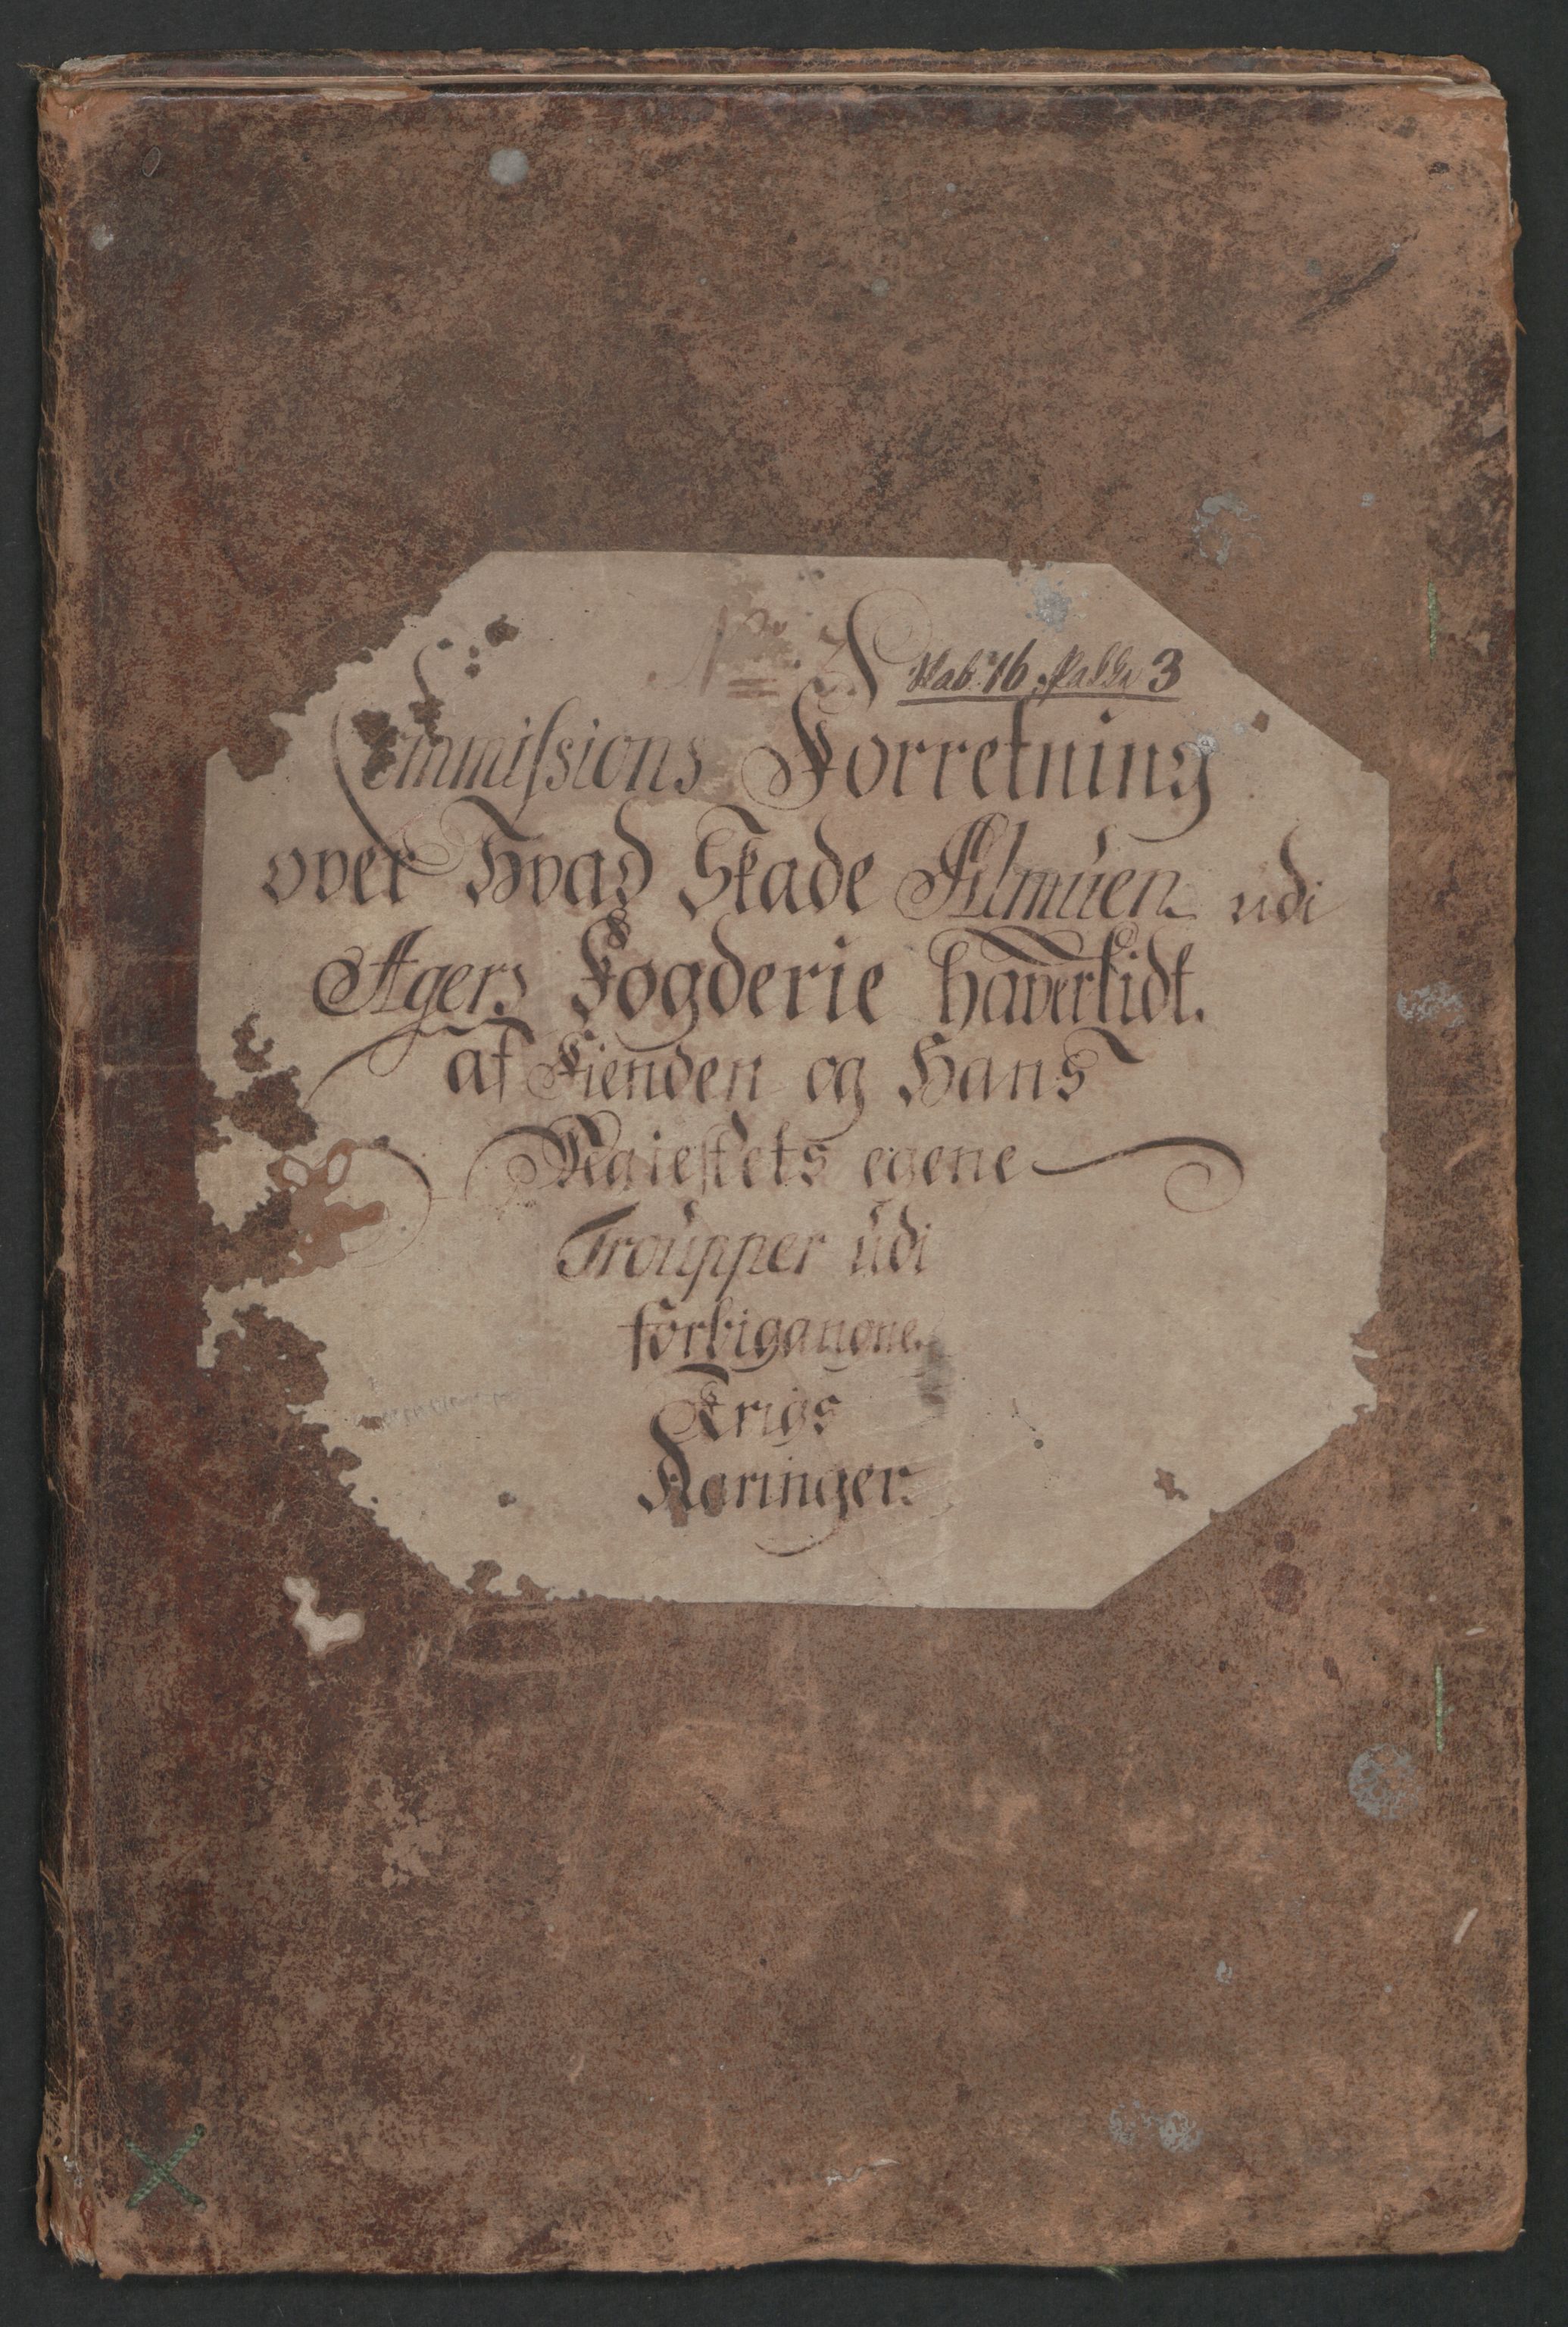 No. 2
Skab 16, Pakke 3
Commissions Forretning
over Hvad Skade Allmüen udi
Agers Fogderie haver lidt.
af Fienden og Hans
Maiestets egene
Troupper üdi
forbigangne
Krigs
Aaringer.